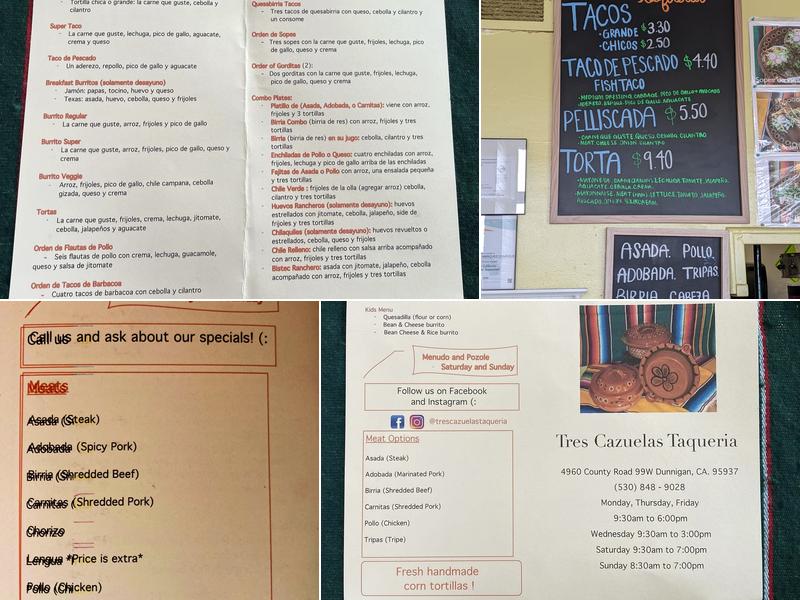 Tortilla chica o grande: la carne que guste, cebolla y
cilantro
Super Taco
La carne que guste, lechuga, pico de gallo, aguacate,
crema y queso
Taco de Pescado
Un aderezo, repollo, pico de gallo y aguacate
Breakfast Burritos (solamente desayuno)
Jamón: papas, tocino, huevo y queso
Texas: asada, huevo, cebolla, queso y frijoles
Burrito Regular
La carne que guste, arroz, frijoles y pico de gallo
Burrito Super
La carne que guste, arroz, frijoles, pico de gallo, queso y
crema
Burrito Veggie
Arroz, frijoles, pico de gallo, chile campana, cebolla
gizada, queso y crema
Tortas
La carne que guste, frijoles, crema, lechuga, jitomate,
cebolla, jalapeños y aguacate
Orden de Flautas de Pollo
Seis flautas de pollo con crema, lechuga, guacamole,
queso y salsa de jitomate
Orden de Tacos de Barbacoa
Cuatro tacos de barbacoa con cebolla y cilantro
Quesabirria Tacos
Tres tacos de quesabirria con queso, cebolla y cilantro y
un consome
Orden de Sopes
Tres sopes con la carne que guste, frijoles, lechuga, pico
de gallo, queso y crema
Order of Gorditas (2):
Dos gorditas con la carne que guste, frijoles, lechuga,
pico de gallo, queso y crema
Combo Plates:
Platillo de (Asada, Adobada, o Carnitas): viene con arroz,
frijoles y 3 tortillas
Birria Combo (birria de res) con arroz, frijoles y tres
tortillas
Birria (birria de res) en su jugo: cebolla, cilantro y tres
tortillas
Enchiladas de Pollo o Queso: cuatro enchiladas con arroz,
frijoles, lechuga y pico de gallo arriba de las enchiladas
Fajitas de Asada o Pollo con arroz, una ensalada pequeña
y tres tortillas
Chile Verde : frijoles de la olla (agregar arroz) cebolla,
cilantro y tres tortillas
Huevos Rancheros (solamente desayuno): huevos
estrellados con jitomate, cebolla, jalapeño, side de
frijoles y tres tortillas
Chilaquiles (solamente desayuno): huevos revueltos o
estrellados, cebolla, queso y frijoles
Chile Relleno: chile relleno con salsa arriba acompañado
con arroz, frijoles y tres tortillas
Bistec Ranchero: asada con jitomate, jalapeño, cebolla
acompañado con arroz, frijoles y tres tortillas
TACOS
• GRANDE $3.30
• CHICOS $2.50
TACO DE PESCADO $4.40
FISH TACO
PELLISCADA $5.50
• CARNE QUE GUSTE, QUESO, CEBOLLA, CILANTRO
• MEAT, CHEESE, ONION, CILANTRO
TORTA $9.40
ASADA. POLLO.
ADOBADA. TRIPAS.
BIRRIA. CABEZA.
Call us and ask about our specials! (:
Meats
Asada (Steak)
Adobada (Spicy Pork)
Birria (Shredded Beef)
Carnitas (Shredded Pork)
Chorizo
Lengua *Price is extra*
Pollo (Chicken)
Kids Menu
Quesadilla (flour or corn)
Bean & Cheese burrito
Bean Cheese & Rice burrito
Menudo and Pozole
Saturday and Sunday
Follow us on Facebook
and Instagram (:
@trescazuelastaqueria
Meat Options
Asada (Steak)
Adobada (Marinated Pork)
Birria (Shredded Beef)
Carnitas (Shredded Pork)
Pollo (Chicken)
Tripas (Tripe)
Fresh handmade
corn tortillas !
Tres Cazuelas Taqueria
4960 County Road 99W Dunnigan, CA. 95937
(530) 848 - 9028
Monday, Thursday, Friday
9:30am to 6:00pm
Wednesday 9:30am to 3:00pm
Saturday 9:30am to 7:00pm
Sunday 8:30am to 7:00pm